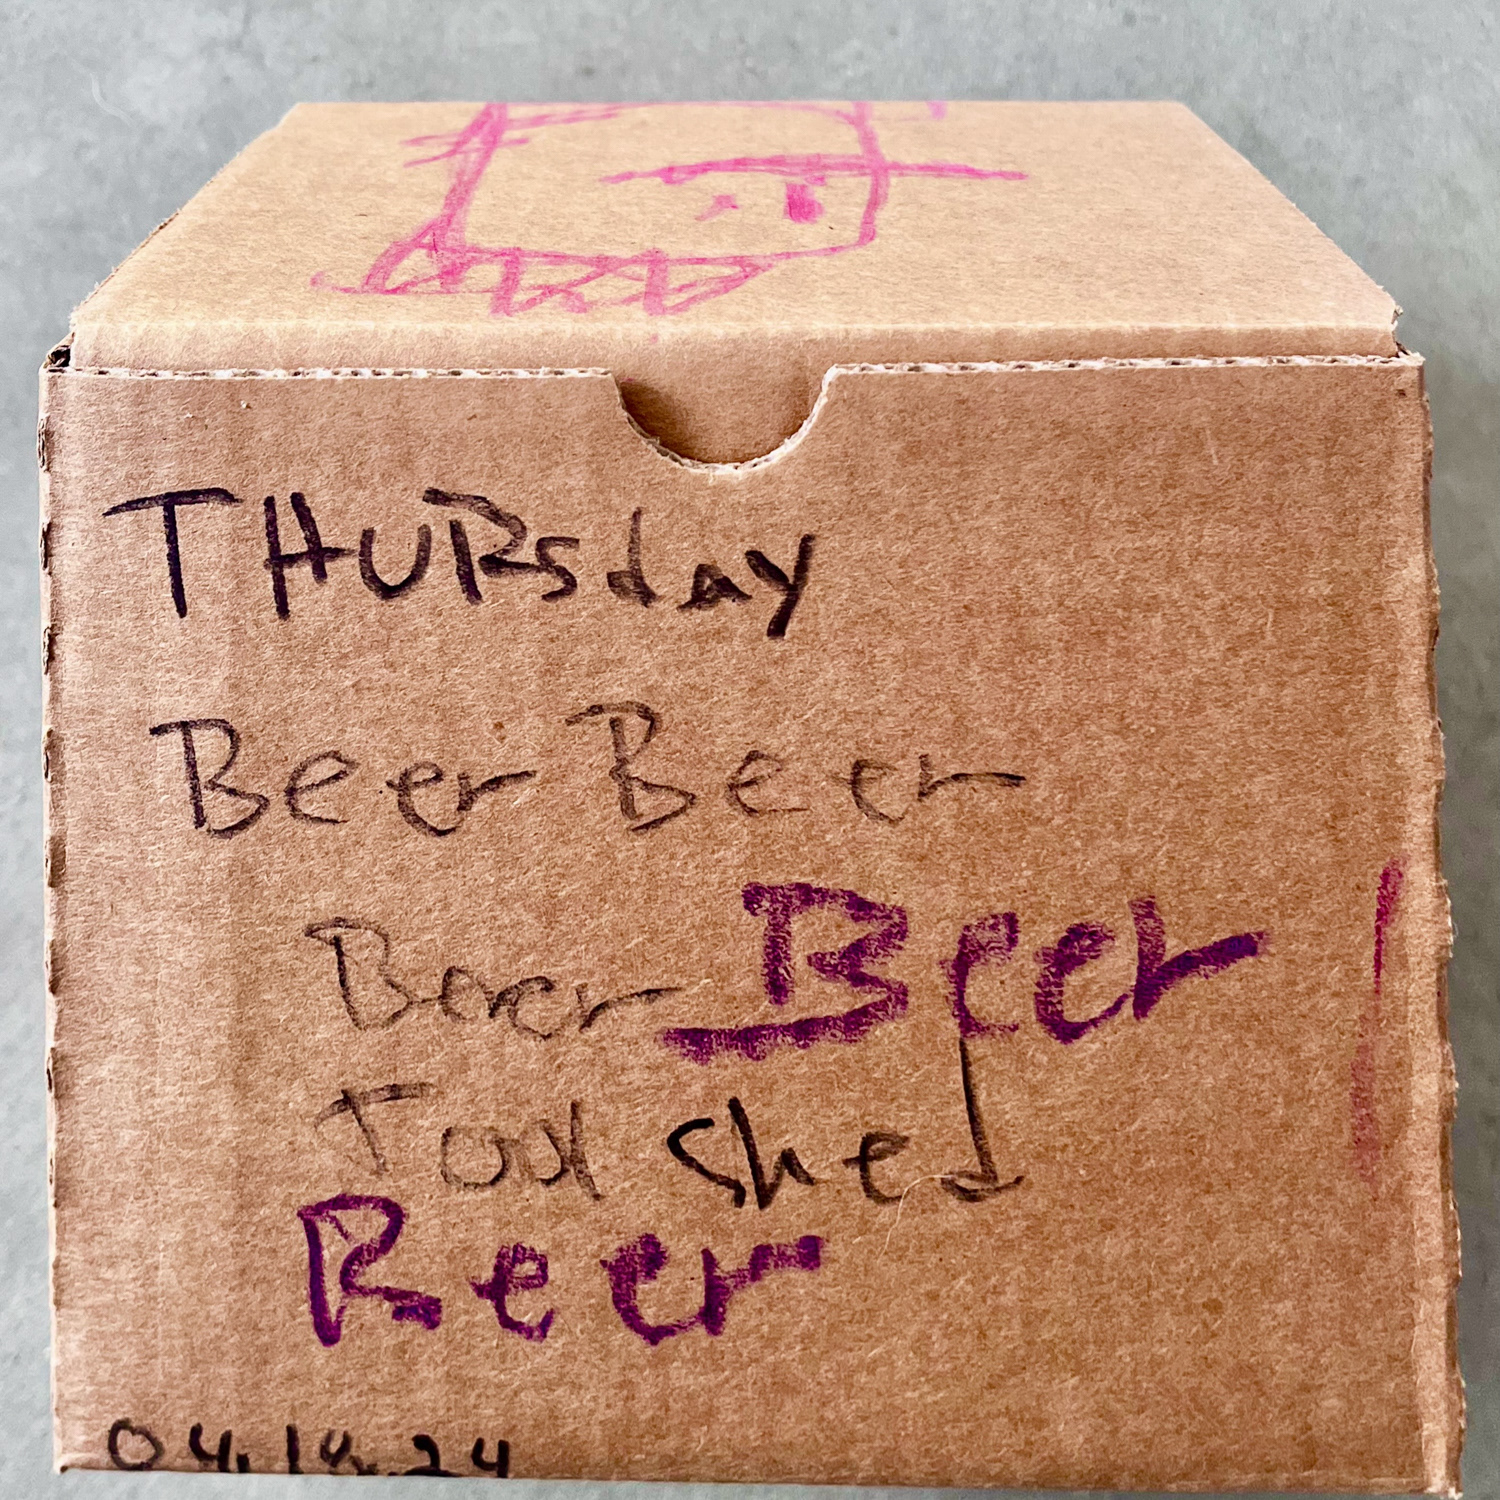 THURsday
Beer Beer
Beer Beer
Tool shed
Beer
04.18.24